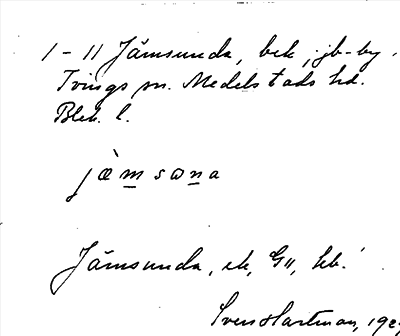 1-11 Jämsunda, bek, jb-by.
Tvings sn. Medelstads hd.
Blek. l.
jæ̀m̲san̲a
Jämsunda, ek, G11, kb.
Sven Hartman, 192